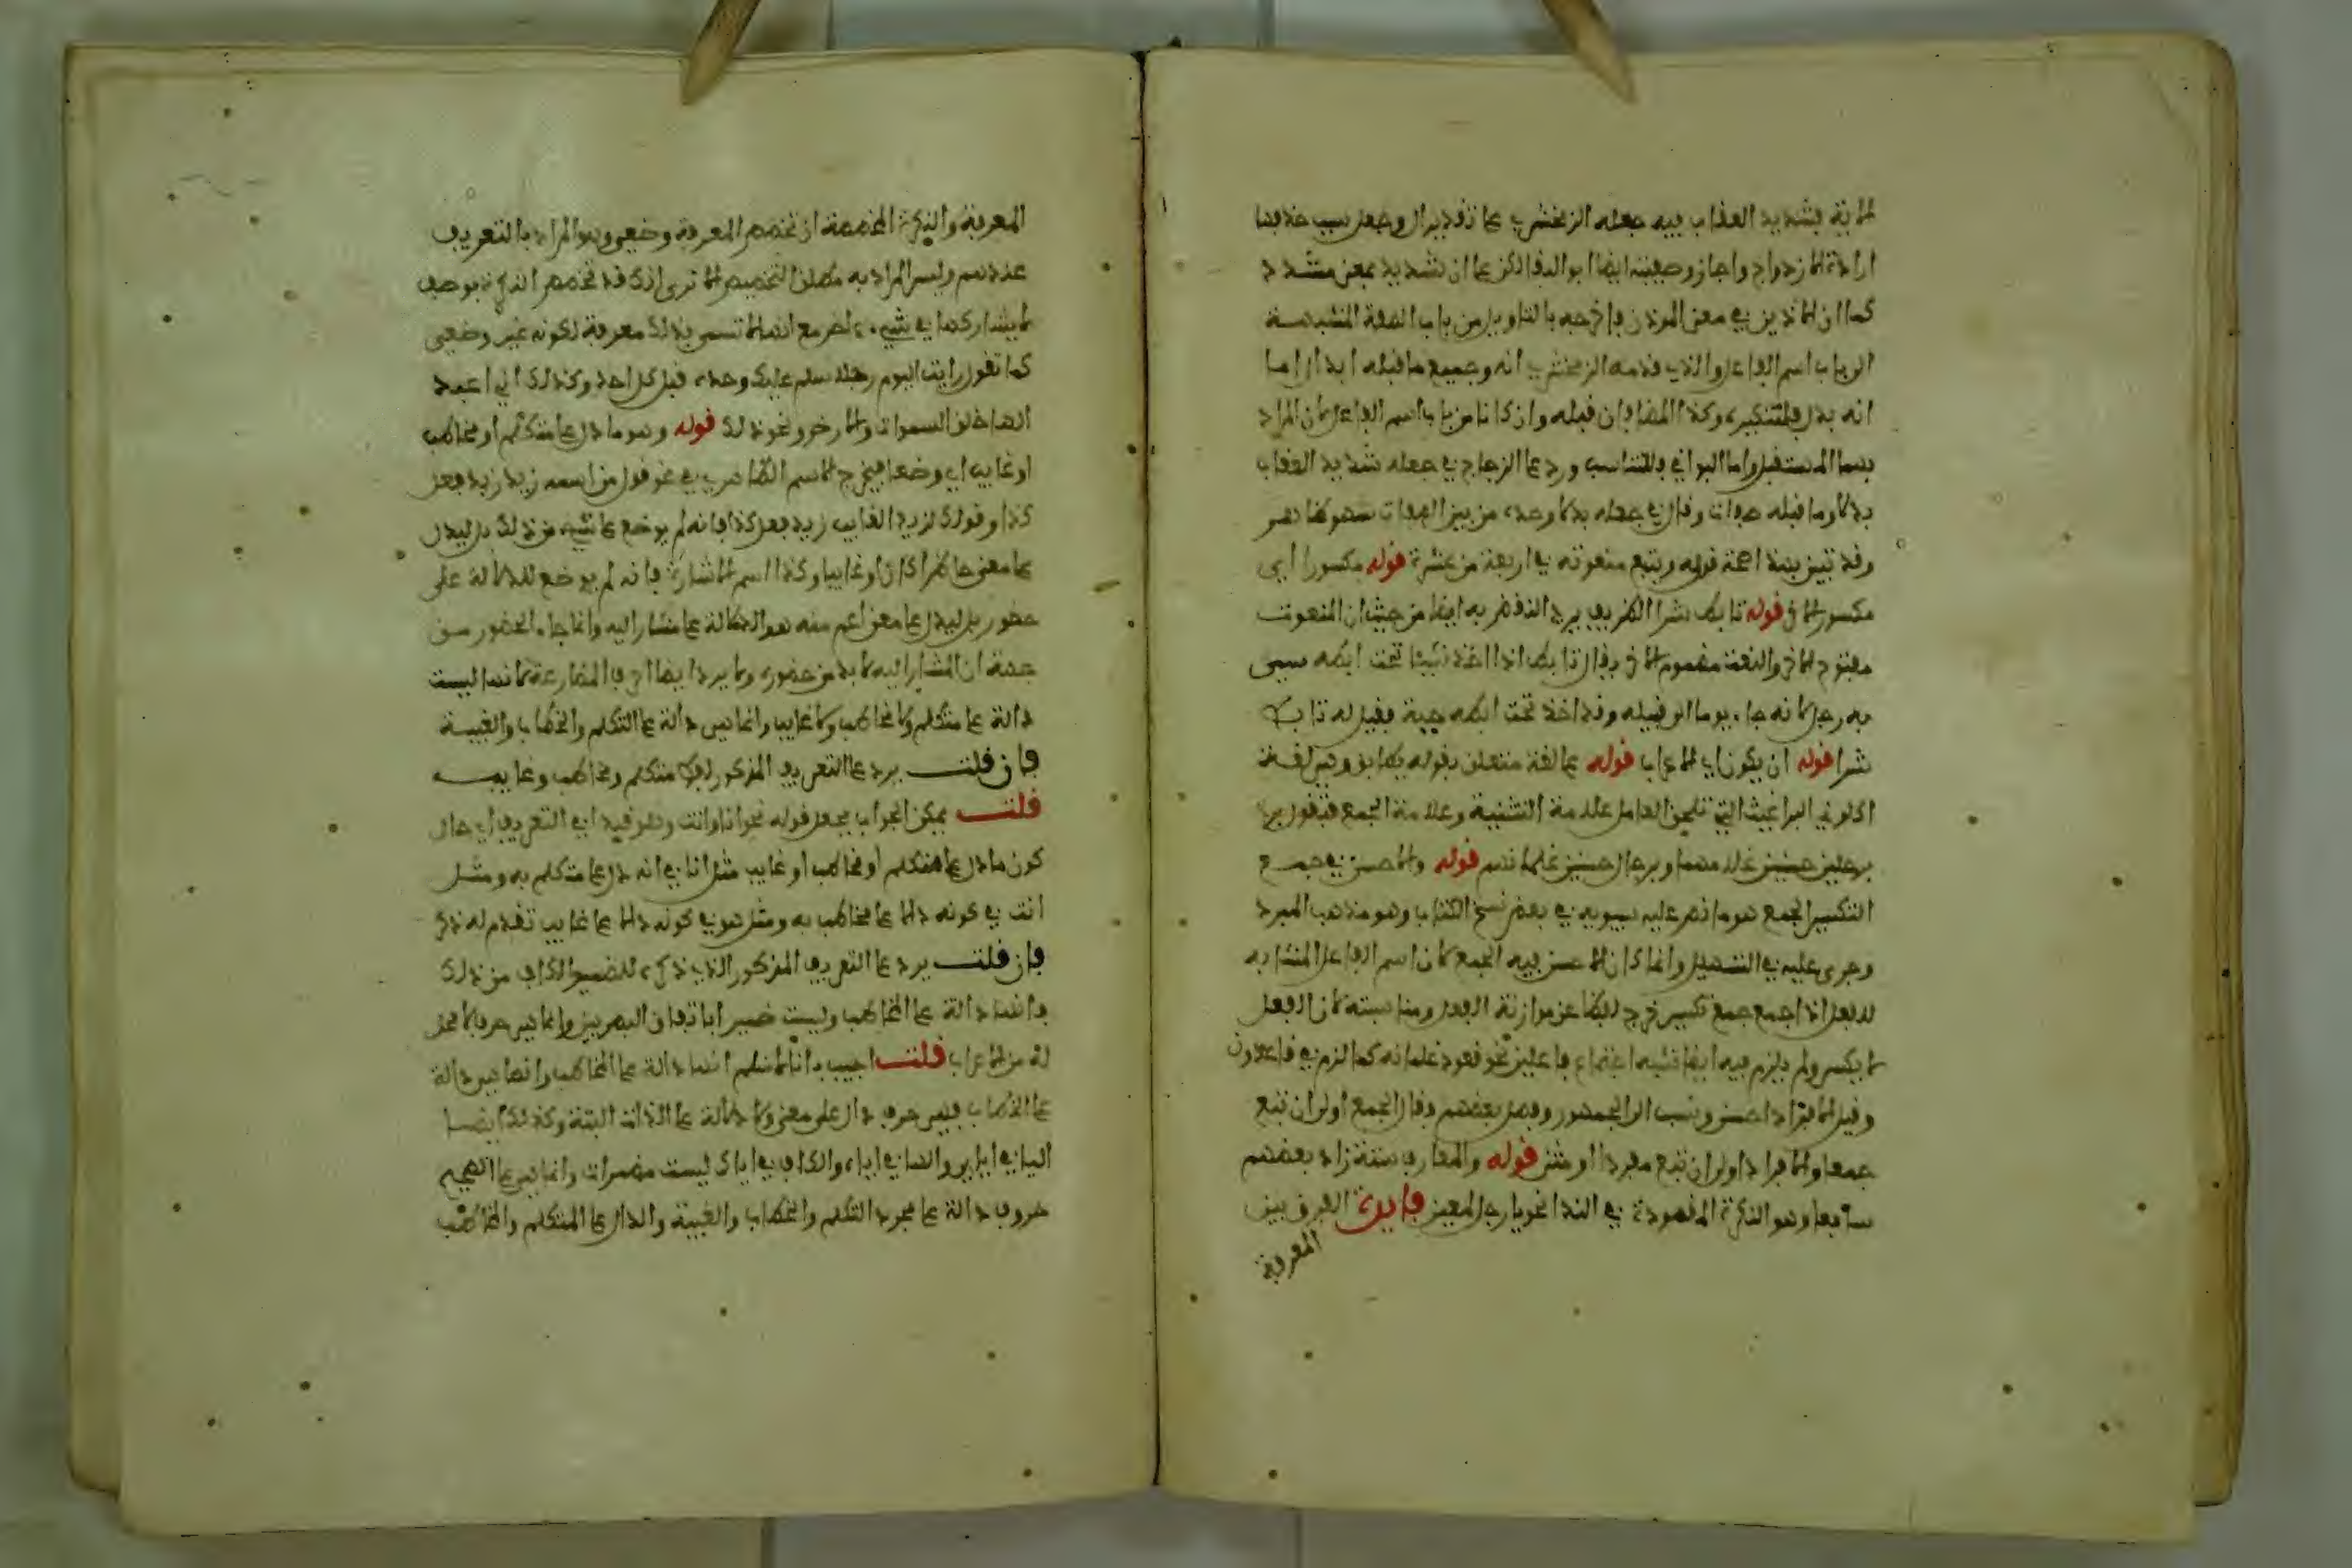 الآية فشديد العقاب فيه جعله الزمخشري على تقدير ال وجعل سبب حذفها
ارادة الازدواج واجاز وصفيته ايضا ابو البقا لكن على ان شديد بمعنى مشدد
كما ان الاذين في معنى الموذن فاخرجه بالتاويل من باب الصفة المشبهة
الى باب اسم الفاعل والذي قدمه الزمخشري انه وجميع ما قبله ابدال اما
انه بدل فلتنكيره وكذا المضافان قبله وان كانا من باب اسم الفاعل لان المراد
بهما المستقبل واما البواقي فللتناسب ورد على الزجاج في جعله شديد العقاب
بدلا وما قبله صفات وقال في جعله بدلا وحده من بين الصفات نبو ظاهر
وقد تبين بهذا صحة قوله ويتبع منعوته في اربعة من عشرة قوله مكسورا اي
مكسور الاخر قوله تابط شرا الظريف يرد النقض به ايضا من حيث ان المنعوت
مفتوح الاخر والنعت مضموم الاخر يقال تابط اذا اخذ شيئا تحت ابطه سمي
به رجل لانه جاء يوما الى قبيله وقد اخذ تحت ابطه حية فقيل له تابط
شرا قوله ان يكون اي الاعراب قوله على لغة متعلق بقوله يطابق وهي لغة
اكلوني البراغيث التي تلحق العامل علامة التثنية وعلامة الجمع فتقول مررت
برجلين حسنين غلامهما وبرجال حسنين غلمانهم قوله والاحسن في جمع
التكسير الجمع هو ما نص عليه سيبويه في بعض نسخ الكتاب وهو مذهب المبرد
وجرى عليه في التسهيل وانما كان الاحسن فيه الجمع لان اسم الفاعل المشابه
للفعل اذا جمع جمع تكسير خرج لفظا عن موازنة الفعل ومناسبته لان الفعل
لا يكسر ولم يلزم فيه ايضا شبه اجتماع فاعلين نحو قعود غلمانه كما لزم في قاعدون
وقيل الافراد احسن ونسب الى الجمهور وفصل بعضهم فقال الجمع اولى ان تبع
جمعا والافراد اولى ان تبع مفردا او مثنى قوله والمعارف ستة زاد بعضهم
سابعا وهو النكرة المقصودة في الندا نحو يا رجل لمعين فايدة الفرق بين
المعرفة
المعرفة والنكرة المخصصة ان تخصص المعرفة وضعي وهو المراد بالتعريف
عندهم وليس المراد به مطلق التخصيص الا ترى انك قد تخصص النكرة بوصف
لا يشاركها في شيء اخر مع انها لا تسمى بذلك معرفة لكونه غير وضعي
كما تقول رايت اليوم رجلا سلم عليك وحده قبل كل احد وكذلك اني اعبد
الها خلق السموات والارض ونحو ذلك قوله وهو ما دل على متكلم او مخاطب
او غايب اي وضعا فيخرج الاسم الظاهر في نحو قول من اسمه زيد زيد فعل
كذا وقولك لزيد الغايب زيد فعل كذا فانه لم يوضع على شيء من ذلك بل ليدل
على معنى حاضرا كان او غايبا وكذا اسم الاشارة فانه لم يوضع للدلالة على
حضور بل ليدل على معنى اعم منه هو الدلالة على مشار اليه وانما جاء الحضور من
جهة ان المشار اليه لا بد من حضوره ولا يرد ايضا احرف المضارعة لانها ليست
دالة على متكلم ولا مخاطب ولا غايب وانما هي دالة على التكلم والخطاب والغيبة
فان قلت يرد على التعريف المذكور لفظ متكلم ومخاطب وغايب
قلت يمكن الجواب بجعل قوله نحو انا وانت وهو قيدا في التعريف اي حال
كون ما دل على متكلم او مخاطب او غايب مثل انا في انه دل على متكلم به ومثل
انت في كونه دالا على مخاطب به ومثل هو في كونه دالا على غايب تقدم له ذكر
فان قلت يرد على التعريف المذكور الذي ذكره للضمير الكاف من ذلك
فانها دالة على المخاطب وليست ضميرا باتفاق البصريين وانما هي حرف لا محل
له من الاعراب قلت اجيب بانا لا نسلم انها دالة على المخاطب وانما هي دالة
على الخطاب فهي حرف دال على معنى ولا دلالة على الذات البتة وكذلك ايضا
اليا في اياي والها في اياه والكاف في اياك ليست مضمرات وانما هي على الصحيح
حروف دالة على مجرد التكلم والخطاب والغيبة والدال على المتكلم والمخاطب